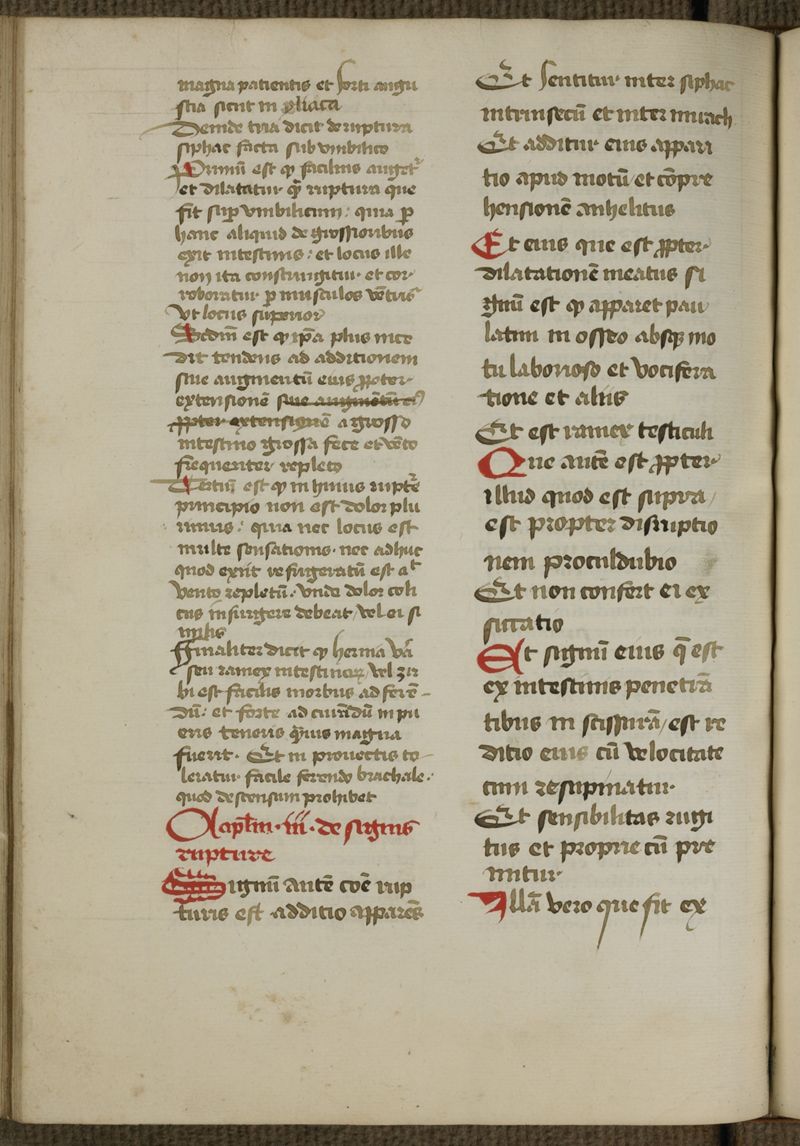 magna patientis et forti angu
stia sicut in yliaca
Deinde tria dicit de ruptura
siphac facta sub vmbilico
Primū est ꝙ facilius auget᷑
et dilatatur qᷓ ruptura que
fit suꝑ vmbilicum: quia ꝑ
hanc aliquid de grossioribus
exit intestinis: et locus ille
non ita constringitur et cor
roboratur ꝑ musculos vētris
vt locus superior
Secdm̄ est ꝙ ip̄a plus ince
dit tendens ad additionem
siue augmentū eius ꝓpter
extensionē siue augmētū ei᷒
ꝓpter extensionē a grosso
intestino grossa fece et vēto
frequenter repleto
Tertiū est ꝙ in huius ruptᷓe
principio non est dolor plu
rimus: quia nec locus est
multe sensationis. nec adhuc
quod exiit refrigeratū est aᵗ
vento repletū. vnde dolor coli
cus insurgere debeat / vel ei si
milis
Finaliter dicit ꝙ hernia vᷓa
seu ramex intestinoꝝ / vel zir
bi est facilis morbus ad ferē
dū: et forte ad curādū in pu
eris teneris qͥbus magna
fuerit. Et in prouectis to
leratur facile ferendo brachale.
quod descensum prohibet
Capl̄m .iii. de signis
rupture
Signū autē cōe rup
turis est additio apparēs
Et sentitur inter siphac
intrinsecū et inter mirach
Et additur eius appari
tio apud motū et cōpre
hensionē anhelitus
Et eius que est ꝓpter
dilatationē meatus si
gnū est ꝙ apparet pau
latim in osseo absqꝫ mo
tu laborioso et vocifera
tione et aliis
Et est ramex testiculi
Que autē est ꝓpter
illud quod est supra /
est propter disruptio
nem proculdubio
Et non confert ei ex
siccatio
Et signū eius qᷓ est
ex intestinis penetrā
tibus in scissurā / est re
ditio eius cū velocitate
cum resupinatur
Et sensibilitas rugi
tus et proprie cū pre
mitur
Illā vero que fit ex